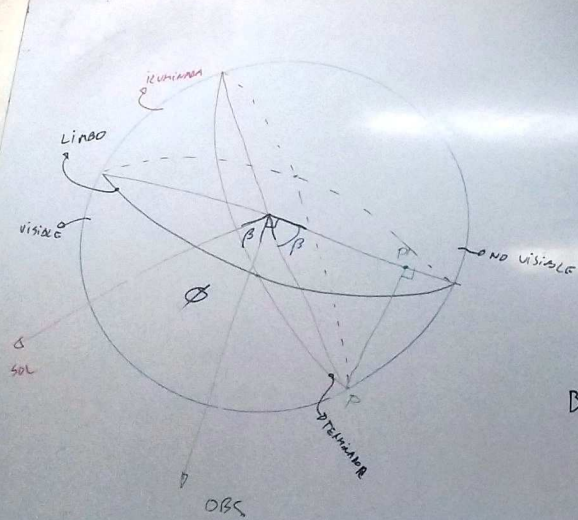 ILUMINADA
LIMBO
VISIBLE
NO VISIBLE
β
β
P'
Φ
SOL
P
TERMINADOR
OBS